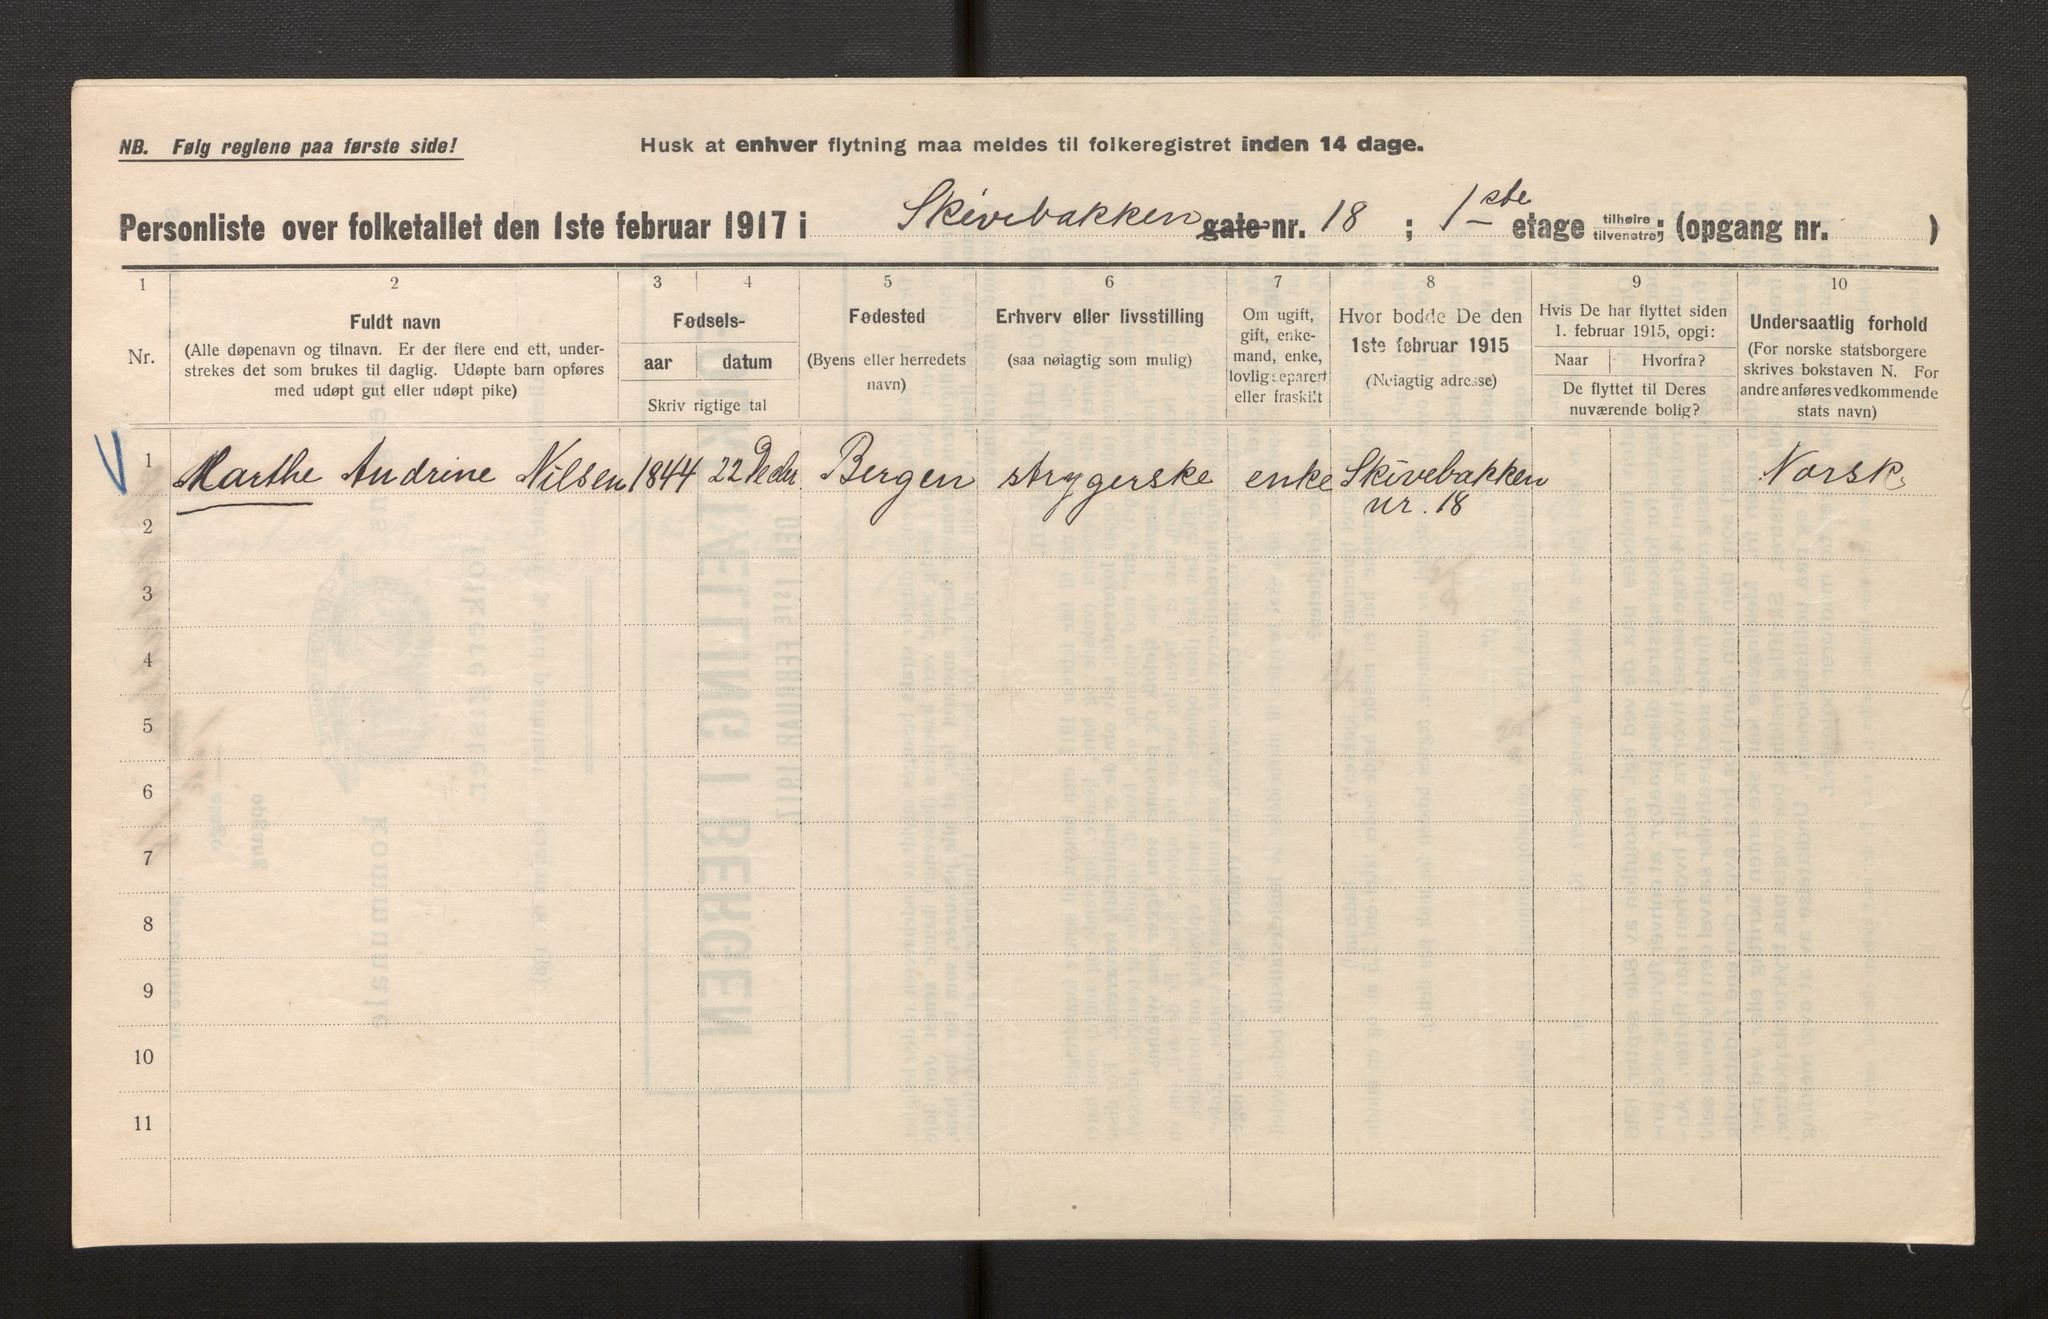 NB. Følg reglene paa første side!
Husk at enhver flytning maa meldes til folkeregistret inden 14 dage.
Personliste over folketallet den 1ste februar 1917 i Skivebakken gate nr. 18 ; 1ste etage tilhøire tilvenstre; (opgang nr. )
1 2 3 4 5 6 7 8 9 10
Nr.
Fuldt navn
(Alle døpenavn og tilnavn. Er der flere end ett, under-
strekes det som brukes til daglig. Udøpte barn opføres
med udøpt gut eller udøpt pike)
Fødsels-
aar datum
Skriv rigtige tal
Fødested
(Byens eller herredets
navn)
Erhverv eller livsstilling
(saa nøiagtig som mulig)
Om ugift,
gift, enke-
mand, enke,
lovlig separert
eller fraskilt
Hvor bodde De den
1ste februar 1915
(Nøiagtig adresse)
Hvis De har flyttet siden
1. februar 1915, opgi:
Naar Hvorfra?
De flyttet til Deres
nuværende bolig?
Undersaatlig forhold
(For norske statsborgere
skrives bokstaven N. For
andre anføres vedkommende
stats navn)
1 Marthe Andrine Nilsen 1844 22 Bergen strygerske enke Skivebakken Norsk
nr. 18
2
3
4
5
6
7
8
9
10
11